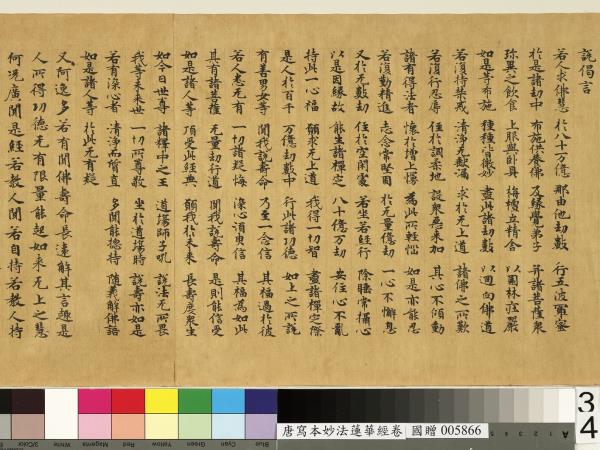 說偈言
若人求佛慧 於八十万億 那由他劫數 行五波羅蜜
於是諸劫中 布施供養佛 及緣覺弟子 幷諸菩薩衆
珎異之飲食 上服與卧具 栴檀立精舍 以園林莊嚴
如是等布施 種種皆微妙 盡此諸劫數 以迴向佛道
若復持禁戒 清淨无𡙇漏 求於无上道 諸佛之所歎
若復行忍辱 住於調柔地 設衆惡來加 其心不傾動
諸有得法者 懷於增上慢 爲此所輕惱 如是亦能忍
若復勤精進 志念常堅固 於无量億劫 一心不懈息
又於无數劫 住於空閑處 若坐若經行 除睡常攝心
以是因緣故 能生諸禪定 八十億万劫 安住心不亂
持此一心福 願求无上道 我得一切智 盡諸禪定際
是人於百千 万億劫數中 行此諸功德 如上之所說
有善男女等 聞我說壽命 乃至一念信 其福過於彼
若人悉无有 一切諸疑悔 深心須臾信 其福爲如此
其有諸菩薩 无量劫行道 聞我說壽命 是則能信受
如是諸人等 頂受此經典 願我於未來 長壽度衆生
如今日世尊 諸釋中之王 道場師子吼 說法无所畏
我等未來世 一切所尊敬 坐於道場時 說壽亦如是
若有深心者 清淨而質直 多聞能揔持 隨義解佛語
如是諸人等 於此无有疑
又阿逸多若有聞佛壽命長遠解其言趣是
人所得功德无有限量能起如來无上之慧
何況廣聞是經若教人聞若自持若教人持
3/Color White Magenta Red Yellow Green Cyan Blue
唐寫本妙法蓮華經卷 國贈 005866
A
3
4